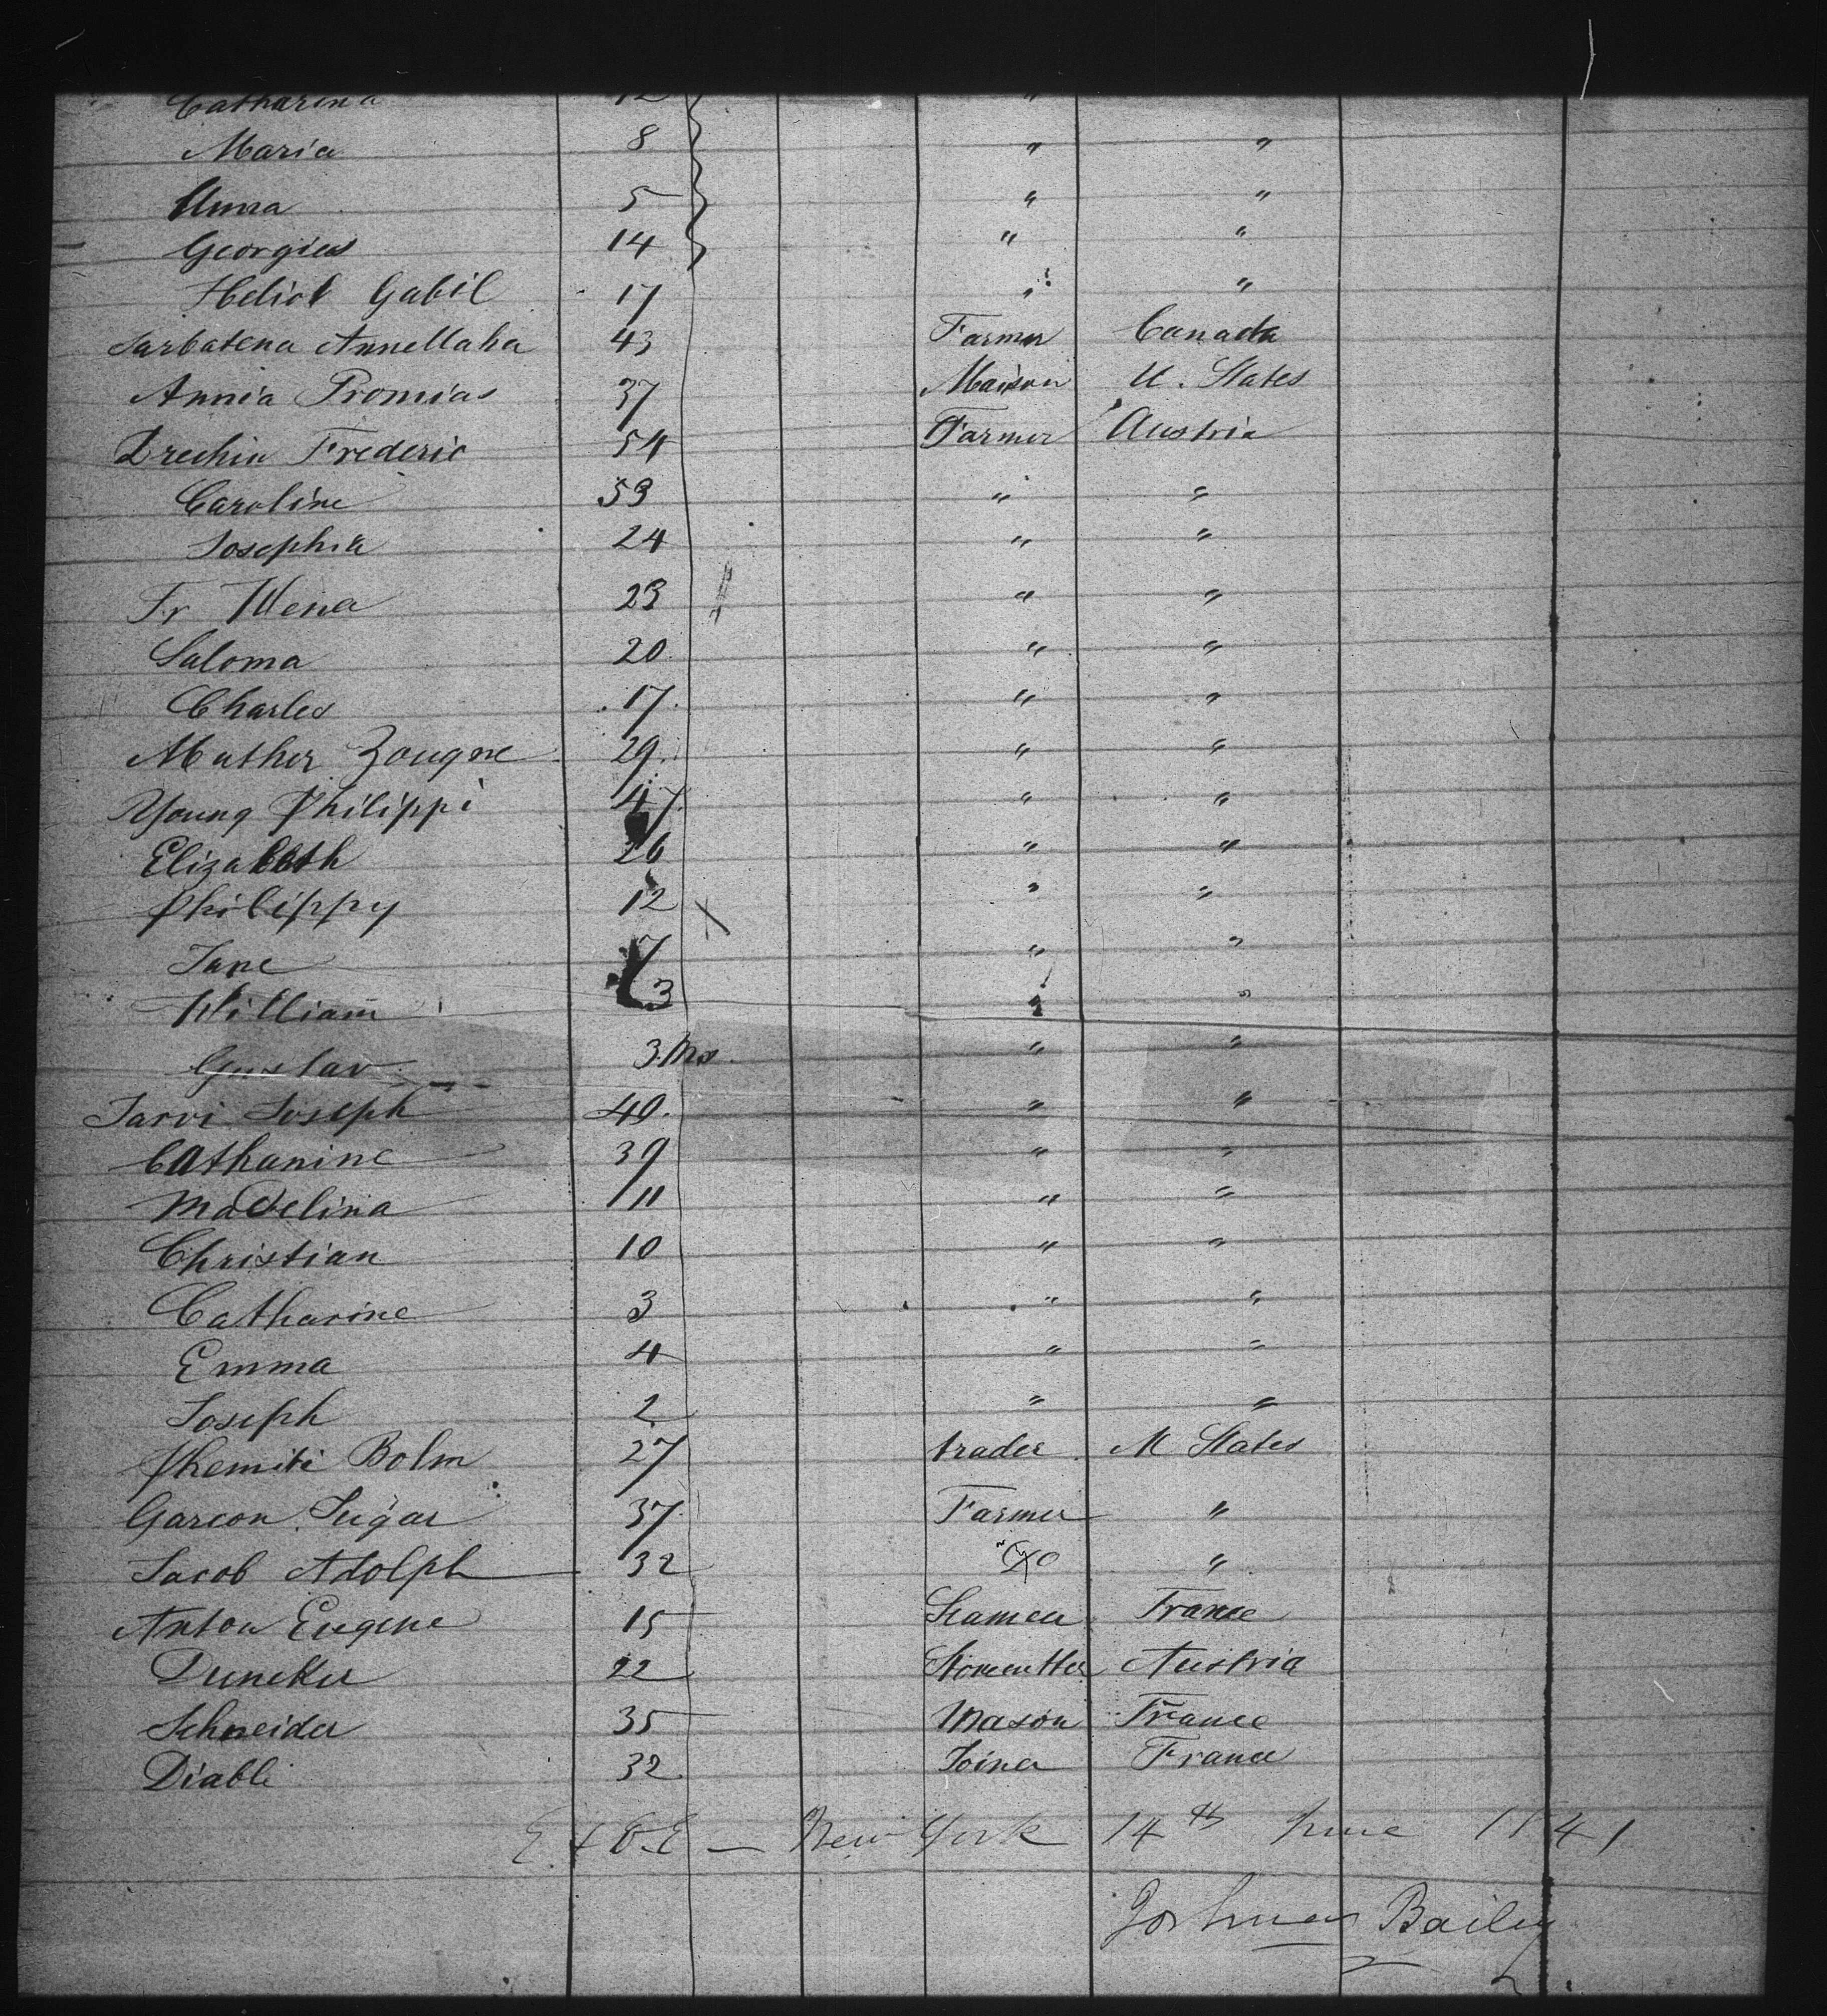 Catharina 12 "
Maria 8 " "
Anna 5 " "
Georgies 14 " "
Heliol Gabil 17 " "
Sarbatena Annellaha 43 Farmer Canada
Annia Promias 37 Maison U. States
Drechin Frederic 54 Farmer Austria
Caroline 53 " "
Josephia 24 " "
Fr Wena 23 " "
Saloma 20 " "
Charles 17 " "
Muther Zougne 29 " "
Young Philippi 47 " "
Elizabeth 26 " "
Philippy 12 " "
Jane 7 " "
William 3 " "
Gustav 3 Mo " "
Jarvi Joseph 40 " "
Cathanine 39 " "
Madelina 11 " "
Christian 10 " "
Catharine 3 " "
Emma 4 " "
Joseph 2 " "
Phemiti Bolm 27 trader U States
Garcon Sugar 37 Farmer "
Jacob Adolph 32 Do "
Anton Eugene 15 Seamen France
Duneker 22 Stonecutter Austria
Schneider 35 Mason France
Diabli 32 Joiner France
E. & O. E — New York 14th June 1841
Joshua Bailey